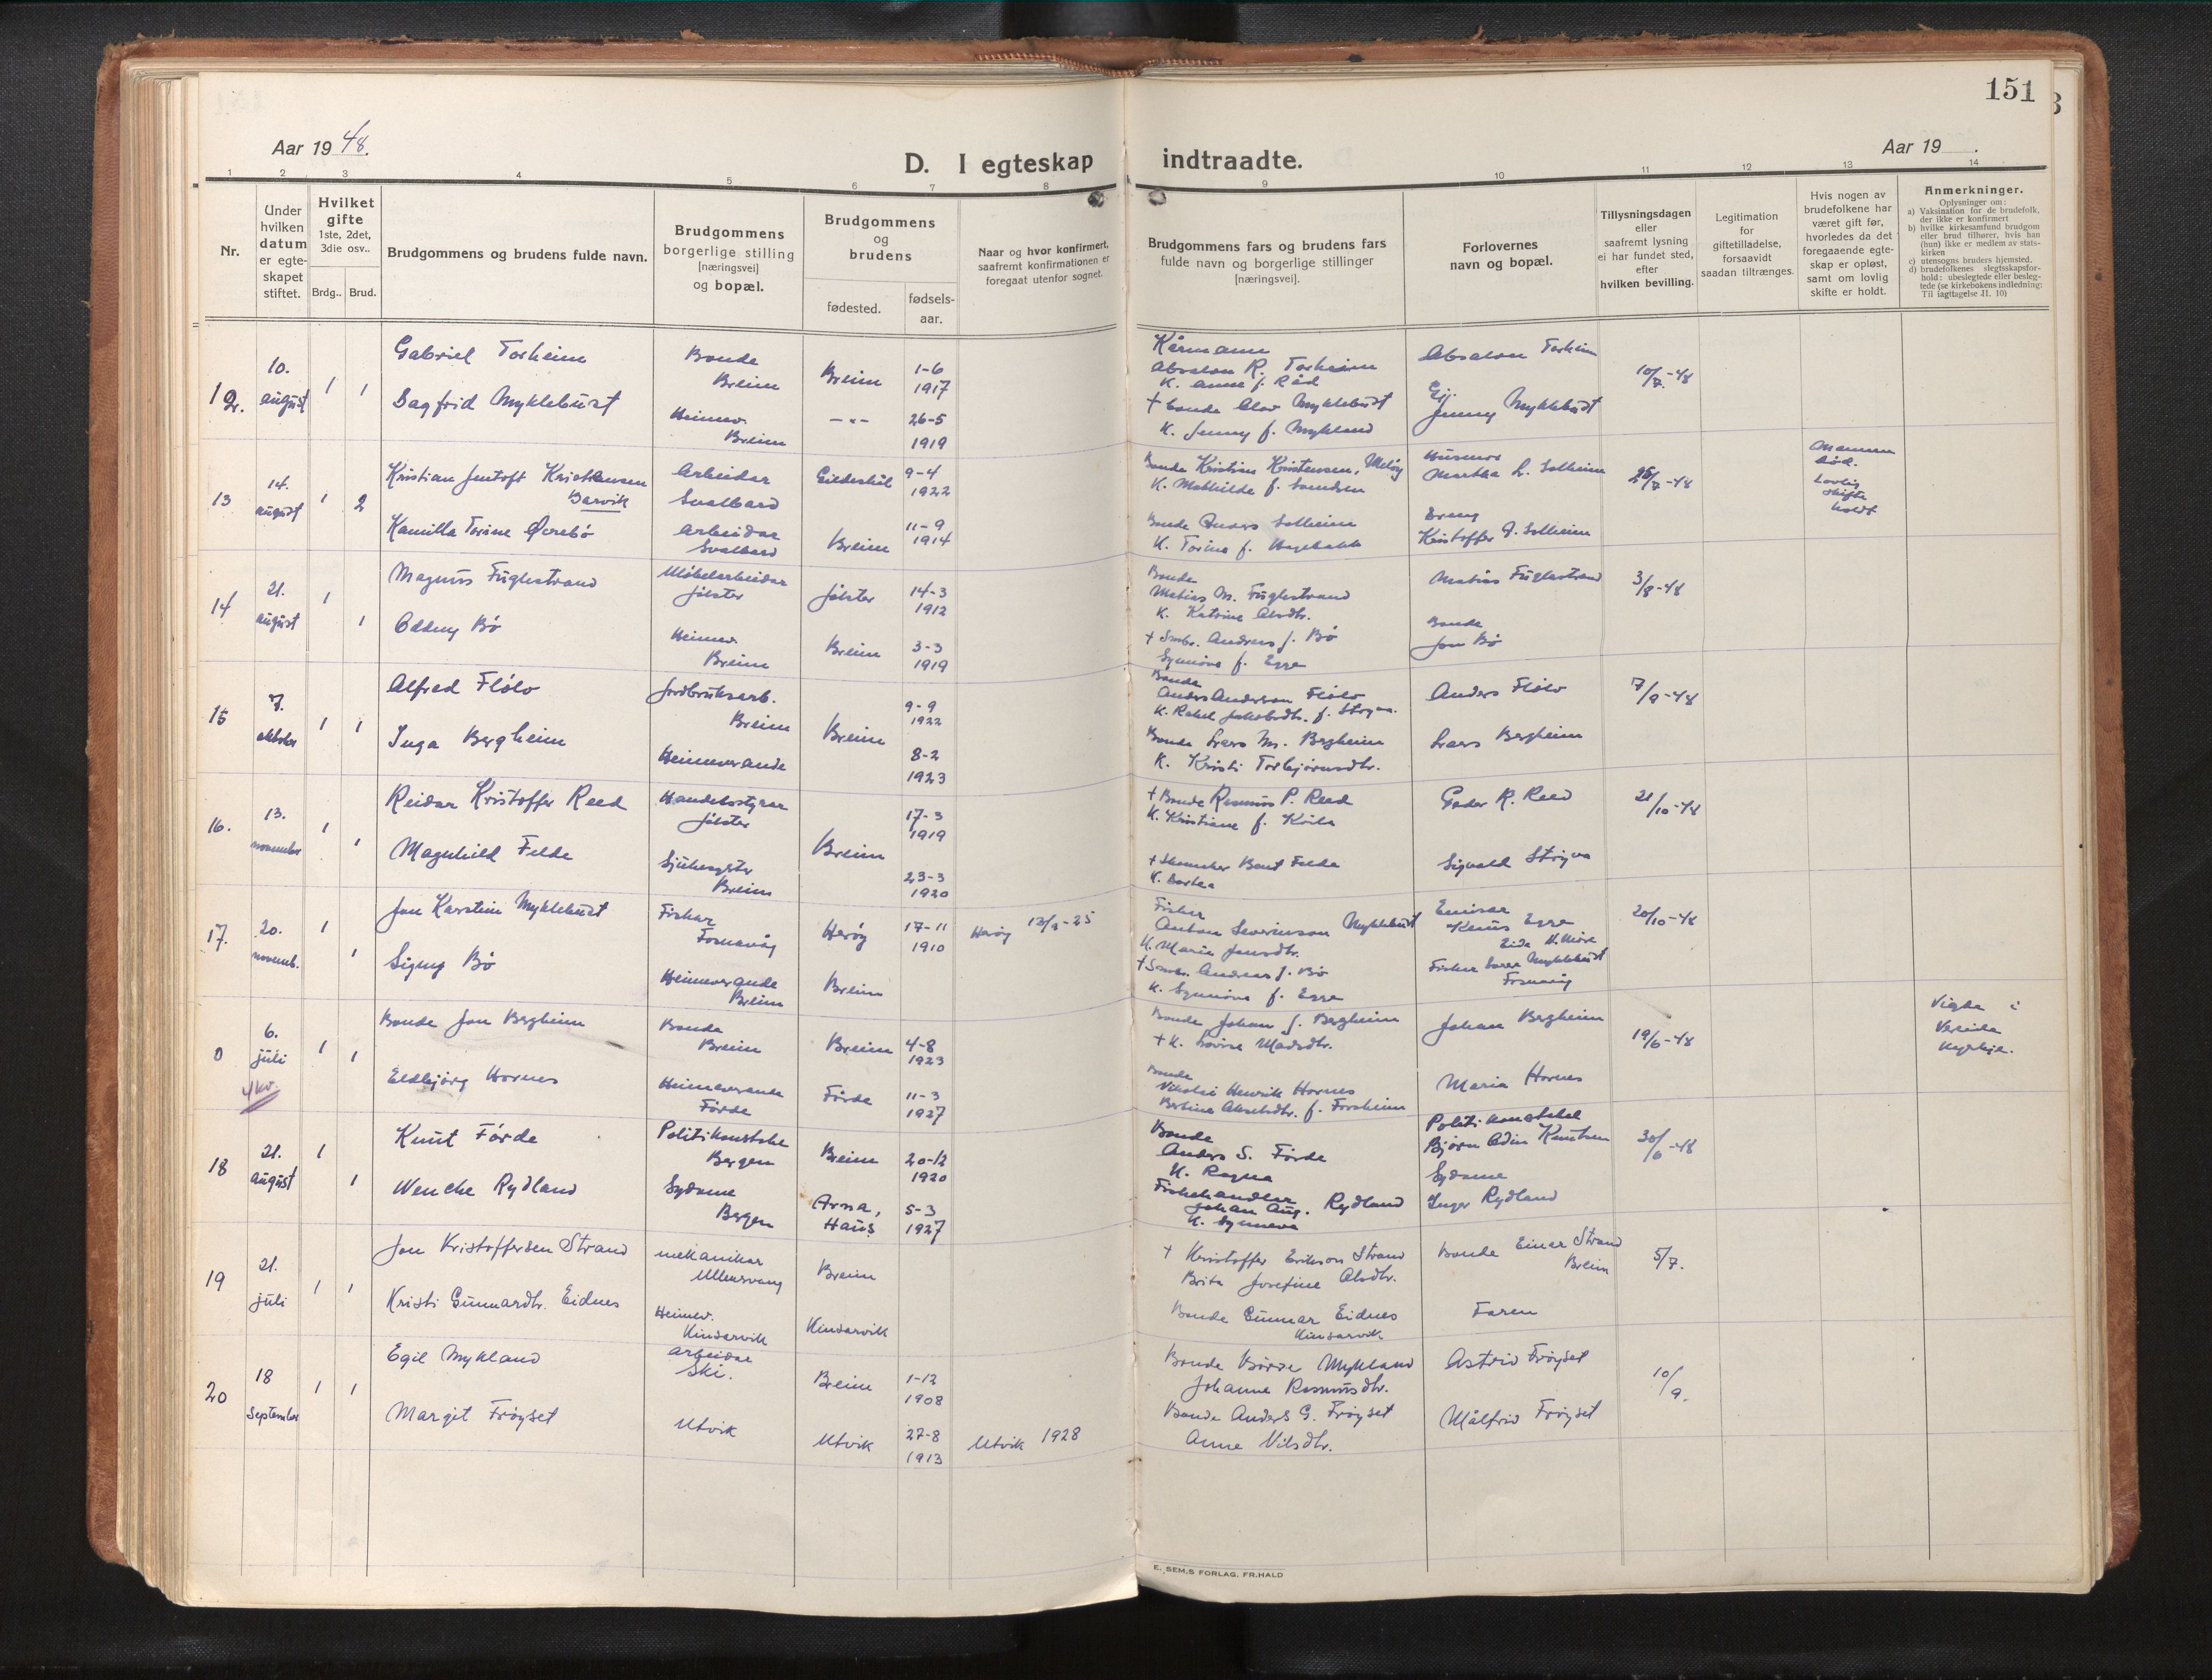 151
Aar 19 48.
D. I egteskap indtraadte.
Aar 19 .
1 2 3 4 5 6 7 8 9 10 11 12 13 14
Nr.
Under hvilken datum er egte-skapet stiftet.
Hvilket gifte 1ste, 2det, 3die osv..
Brdg.. Brud.
Brudgommens og brudens fulde navn.
Brudgommens borgerlige stilling [næringsvei] og bopæl.
Brudgommens og brudens
fødested.
fødsels-aar.
Naar og hvor konfirmert, saafremt konfirmationen er foregaat utenfor sognet.
Brudgommens fars og brudens fars fulde navn og borgerlige stillinger [næringsvei].
Forlovernes navn og bopæl.
Tillysningsdagen eller saafremt lysning ei har fundet sted, efter hvilken bevilling.
Legitimation for giftetilladelse, forsaavidt saadan tiltrænges.
Hvis nogen av brudefolkene har været gift før, hvorledes da det foregaaende egte-skap er opløst, samt om lovlig skifte er holdt.
Anmerkninger.
Oplysninger om:
a) Vaksination for de brudefolk, der ikke er konfirmert
b) hvilke kirkesamfund brudgom eller brud tilhører, hvis han (hun) ikke er medlem av stats-kirken
c) utensogns bruders hjemsted.
d) brudefolkenes slegtsskapsfor-hold: ubeslegtede eller besleg-tede (se kirkebokens indledning: Til iagttagelse II. 10)
12. 10. august 1 1
Gabriel Torheim
Bonde
Breim
Breim
1-6
1917
Kårmann
Absalon R. Torheim
K. Anna f. Råd
Absalon Torheim
10/7-48
Dagfrid Myklebust
Heimev.
Breim
—"—
26-5
1919
+ bonde Olav Myklebust
K. Jenny f. Mykland
Jenny Myklebust
13 14. august 1 2
Kristian Jentoft Kristensen
Barvik
Arbeidar
Svalbard
Gildeskål
9-4
1922
Bonde Kristian Kristensen, Meløy
K. Mathilde f.
Husmor
Martha L. Solheim
26/7-48
Mannen
død.
Lovleg
skifte
haldt
Kamilla Torine Ørebø
Arbeidar
Svalbard
Breim
11-9
1914
Bonde Anders Solheim
K. Torine f.
Kristoffer A. Solheim
14 21. august 1 1
Magnus Fuglestrand
Møbelarbeidar
Jølster
Jølster
14-3
1912
Bonde
Matias M. Fuglestrand
K. Katrine Olsdtr.
Matias Fuglestrand
3/8-48
Oddny Bø
Heimev.
Breim
Breim
3-3
1919
+ Smbr. Andreas J. Bø
Synnøve f. Egge
Bonde
Jon Bø
15 7. oktober 1 1
Alfred Flølo
Jordbruksarb.
Breim
Breim
9-9
1922
Bonde
Anders Anderson Flølo
K. Rakel Jakobsdtr. f. Stryn.
Anders Flølo
7/9-48
Inga Bergheim
Heimeverande
8-2
1923
Bonde Lars M. Bergheim
K. Kristi Torbjørnsdtr.
Lars Bergheim
16. 13. november 1 1
Reidar Kristoffer Reed
Handelsstyrar
Jølster
Breim
17-3
1919
+ Bonde Rasmus P. Reed
K. Kristiane f. Kvile
Peder R. Reed
21/10-48
Magnhild Felde
Sjukesyster
Breim
23-3
1920
+ Skomaker Bent Felde
K. Dorthea
Sigvald Stryn
17. 20. novemb. 1 1
Jon Karstein Myklebust
Fiskar
Fosnavåg
Herøy
17-11
1910
Herøy 13/9-25
Fisker
Anton Severinson Myklebust
K. Maria Jensdtr.
Emisær
Rasmus Egge
Eide N. Møre
20/10-48
Signy Bø
Heimeverande
Breim
Breim
+ Smbr. Andreas J. Bø
K. Synnøve f. Egge
Fisker Sverre Myklebust
Fosnavåg
0 6. juli 1 1
4 kv.
Bonde Jon Bergheim
Bonde
Breim
Breim
4-8
1923
Bonde Johan J. Bergheim
+ K. Lovise Madsdtr.
Johan Bergheim
19/6-48
Vigde i
Vereide
kyrkje.
Eldbjørg Hornes
Heimeverande
Førde
Førde
11-3
1927
Bonde
Nikolai Henrik Hornes
Bertine Akselsdtr. f. Forsheim
Maria Hornes
18 21. august 1 1
Knut Førde
Politikonstabe
Bergen
Breim
20-12
1920
Bonde
Anders S. Førde
K. Ragna
Politikonstabel
Bjørn Odin Knutsen
30/6-48
Wenche Rydland
Sydame
Bergen
Arna,
Haus
5-3
1927
Fiskehandlar
Johan Aug. Rydland
K. Synneva
Sydame
Inger Rydland
19 21. juli 1 1
Jon Kristoffersen Strand
mekanikar
Ullensvang
Breim
+ Kristoffer Erikson Strand
Brita Josefine Olsdtr.
Bonde Einar Strand
Breim
5/7.
Kristi Gunnardtr. Eidnes
Heimev.
Kinsarvik
Kinsarvik
Bonde Gunnar Eidnes
Kinsarvik
Faren
20 18 September 1 1
Egil Mykland
Arbeidar
Ski.
Breim
1-12
1908
Bonde Børre Mykland
Johanne Rasmusdtr.
Astrid Frøyset
10/9.
Margit Frøyset
Utvik
Utvik
27-8
1913
Utvik 1928
Bonde Anders G. Frøyset
Anne Nilsdtr.
Målfrid Frøyset
E. SEM,S FORLAG. FR.HALD